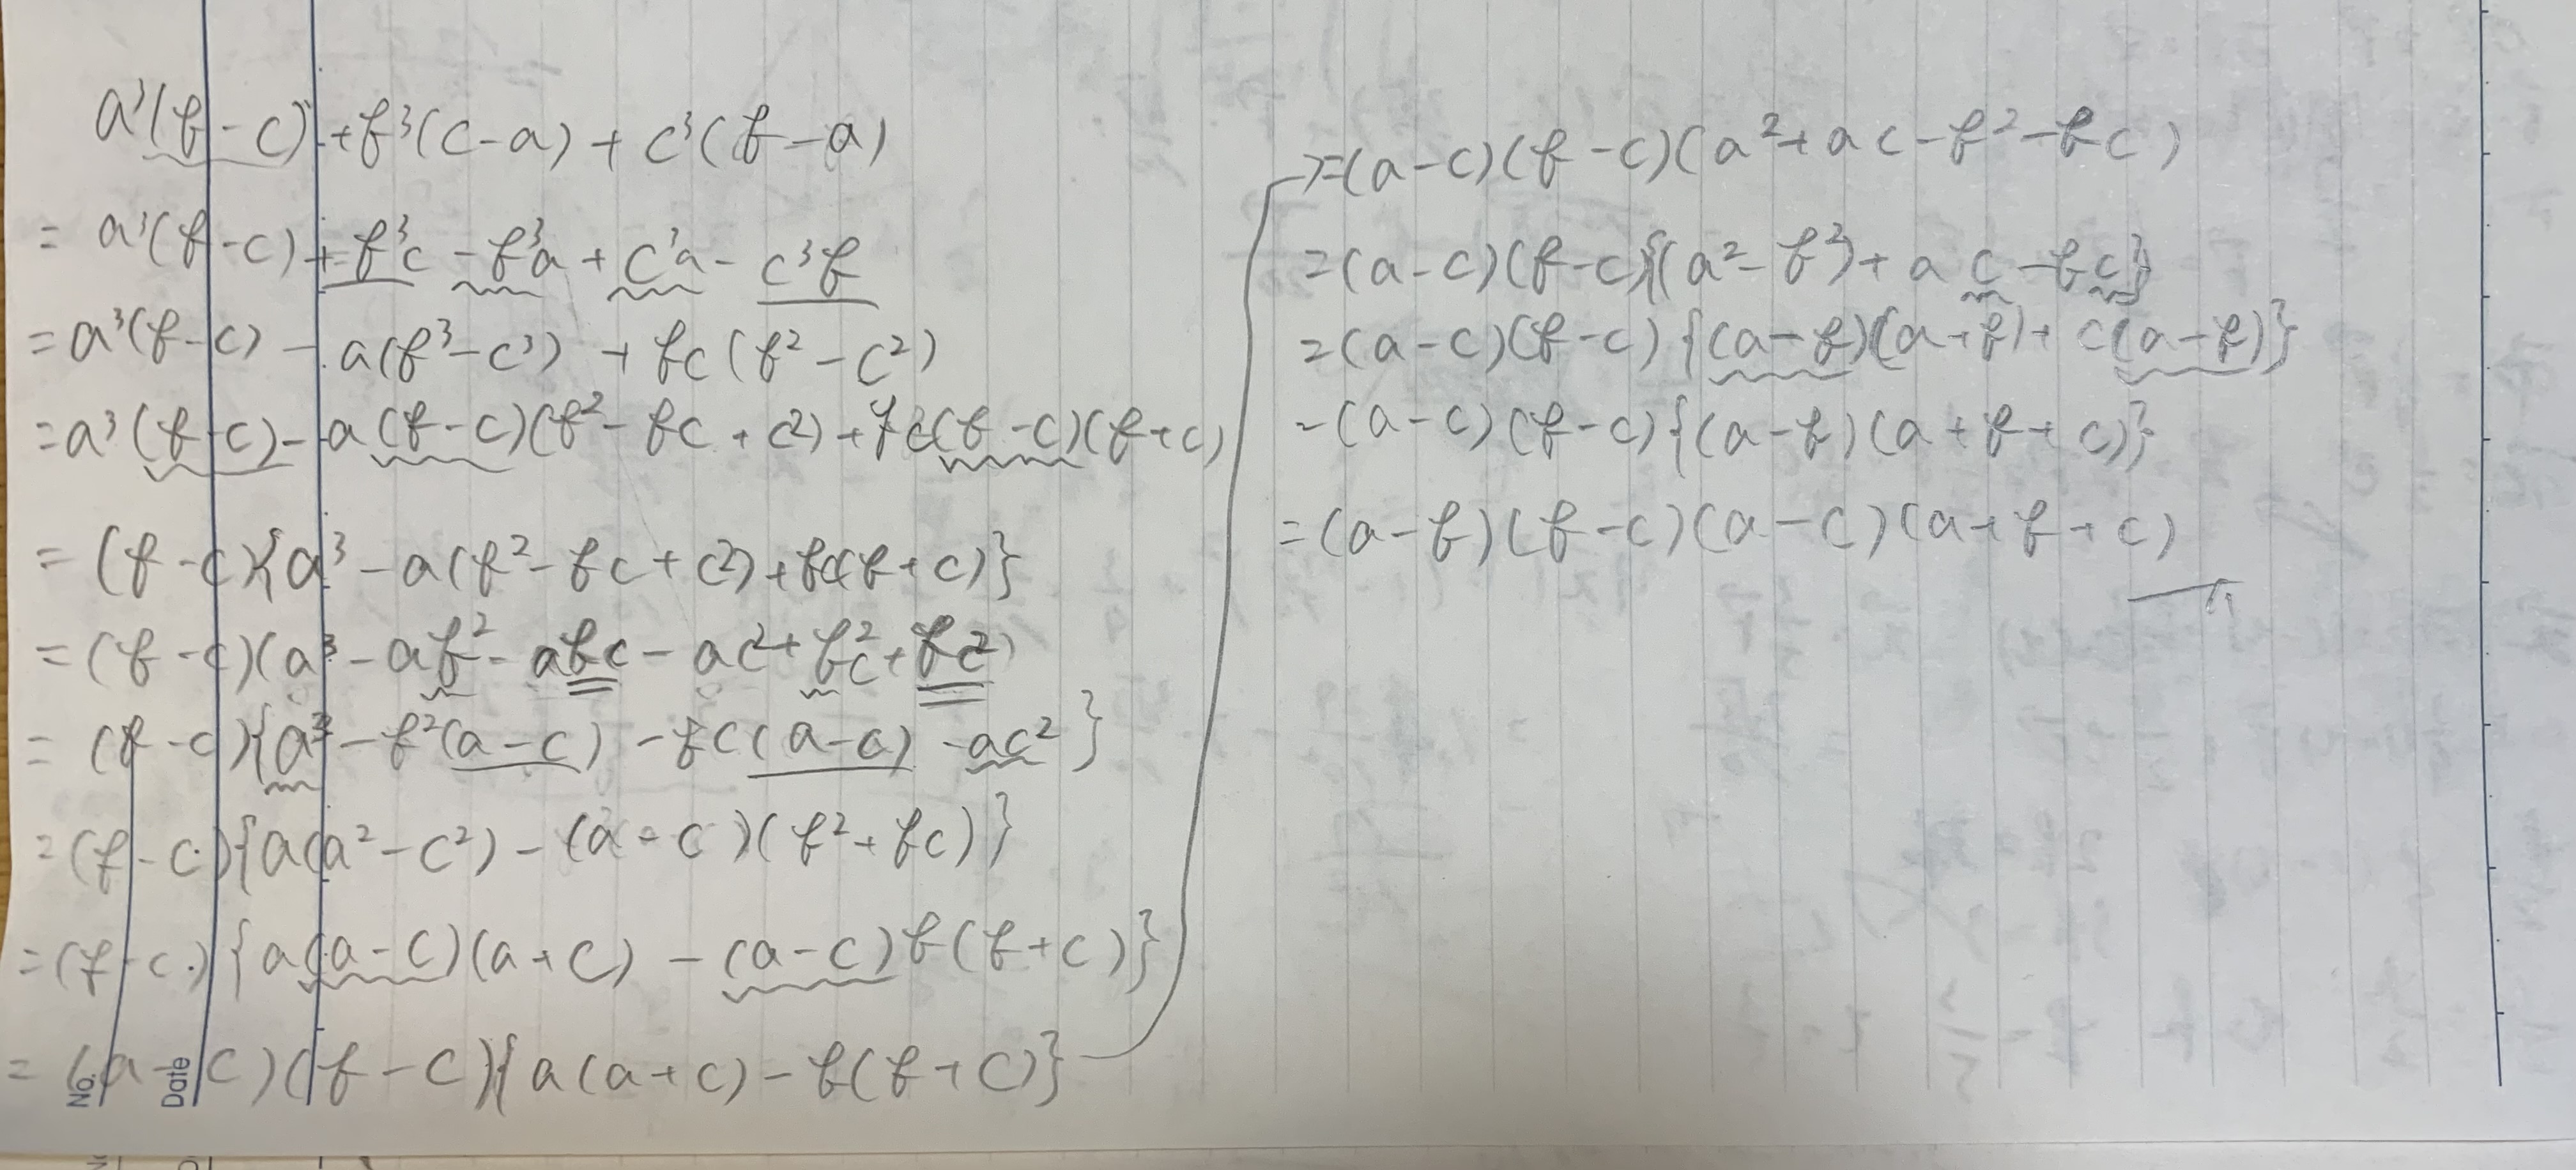 a³(b-c)+b³(c-a)+c³(b-a)
= a³(b-c)+b³c-b³a+c³a-c³b
=a³(b-c)-a(b³-c³)+bc(b²-c²)
=a³(b-c)-a(b-c)(b²-bc+c²)+bc(b-c)(b+c)
= (b-c){a³-a(b²-bc+c²)+bc(b+c)}
= (b-c)(a³-ab²-abc-ac²+b²c+bc²)
= (b-c){a³-b²(a-c)-bc(a-c)-ac²}
=(b-c){a(a²-c²)-(a-c)(b²+bc)}
=(b-c){a(a-c)(a+c)-(a-c)b(b+c)}
= (a-c)(b-c){a(a+c)-b(b+c)}
=(a-c)(b-c)(a²+ac-b²-bc)
=(a-c)(b-c){(a²-b²)+ac-bc}
=(a-c)(b-c){(a-b)(a+b)+c(a-b)}
=(a-c)(b-c){(a-b)(a+b+c)}
=(a-b)(b-c)(a-c)(a+b+c)
No.
Date